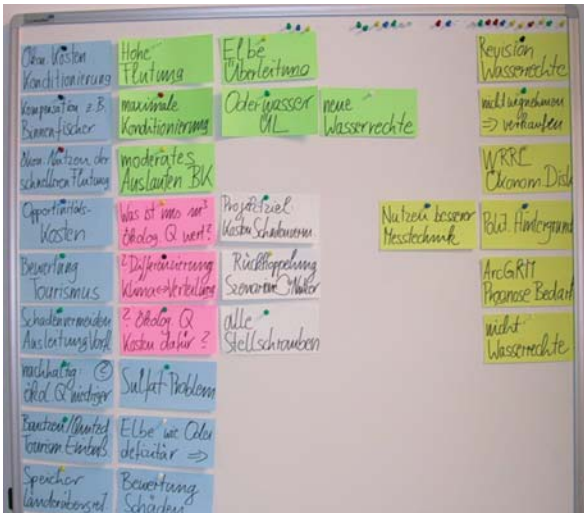 Ökon. Kosten
Konditionierung
Kompensation z.B.
Binnenfischer
ökon. Nutzen der
schnelleren Flutung
Opportunitäts-
Kosten
Bewertung
Tourismus
Schadenvermeiden
Ausleitung Vorfl.
nachhaltig: ?
ökol. Q niedriger
Bautzen/Quitzd
Tourism. Einbuß.
Speicher
Länderübergreif.
Hohe
Flutung
maximale
Konditionierung
moderates
Auslaufen BK
Was ist uns
ökolog. Q wert?
? Differenzierung
Klima ↔ Verteilung
? ökolog. Q
Kosten dafür ?
Sulfat Problem
Elbe wie Oder
defizitär ⇒
Bewertung
Schäden
Elbe
Überleitung
Oderwasser
ÜL
Projektziel
Kosten Schadenverm.
Rückkoppelung
Szenarien
alle
Stellschrauben
neue
Wasserrechte
Nutzen besserer
Messtechnik
Revision
Wasserrechte
nicht wegnehmen
⇒ verkaufen
WRRL
Ökonom. Disk
Polit. Hintergrund
ArcGRM
Prognose Bedarf
nicht
Wasserrechte